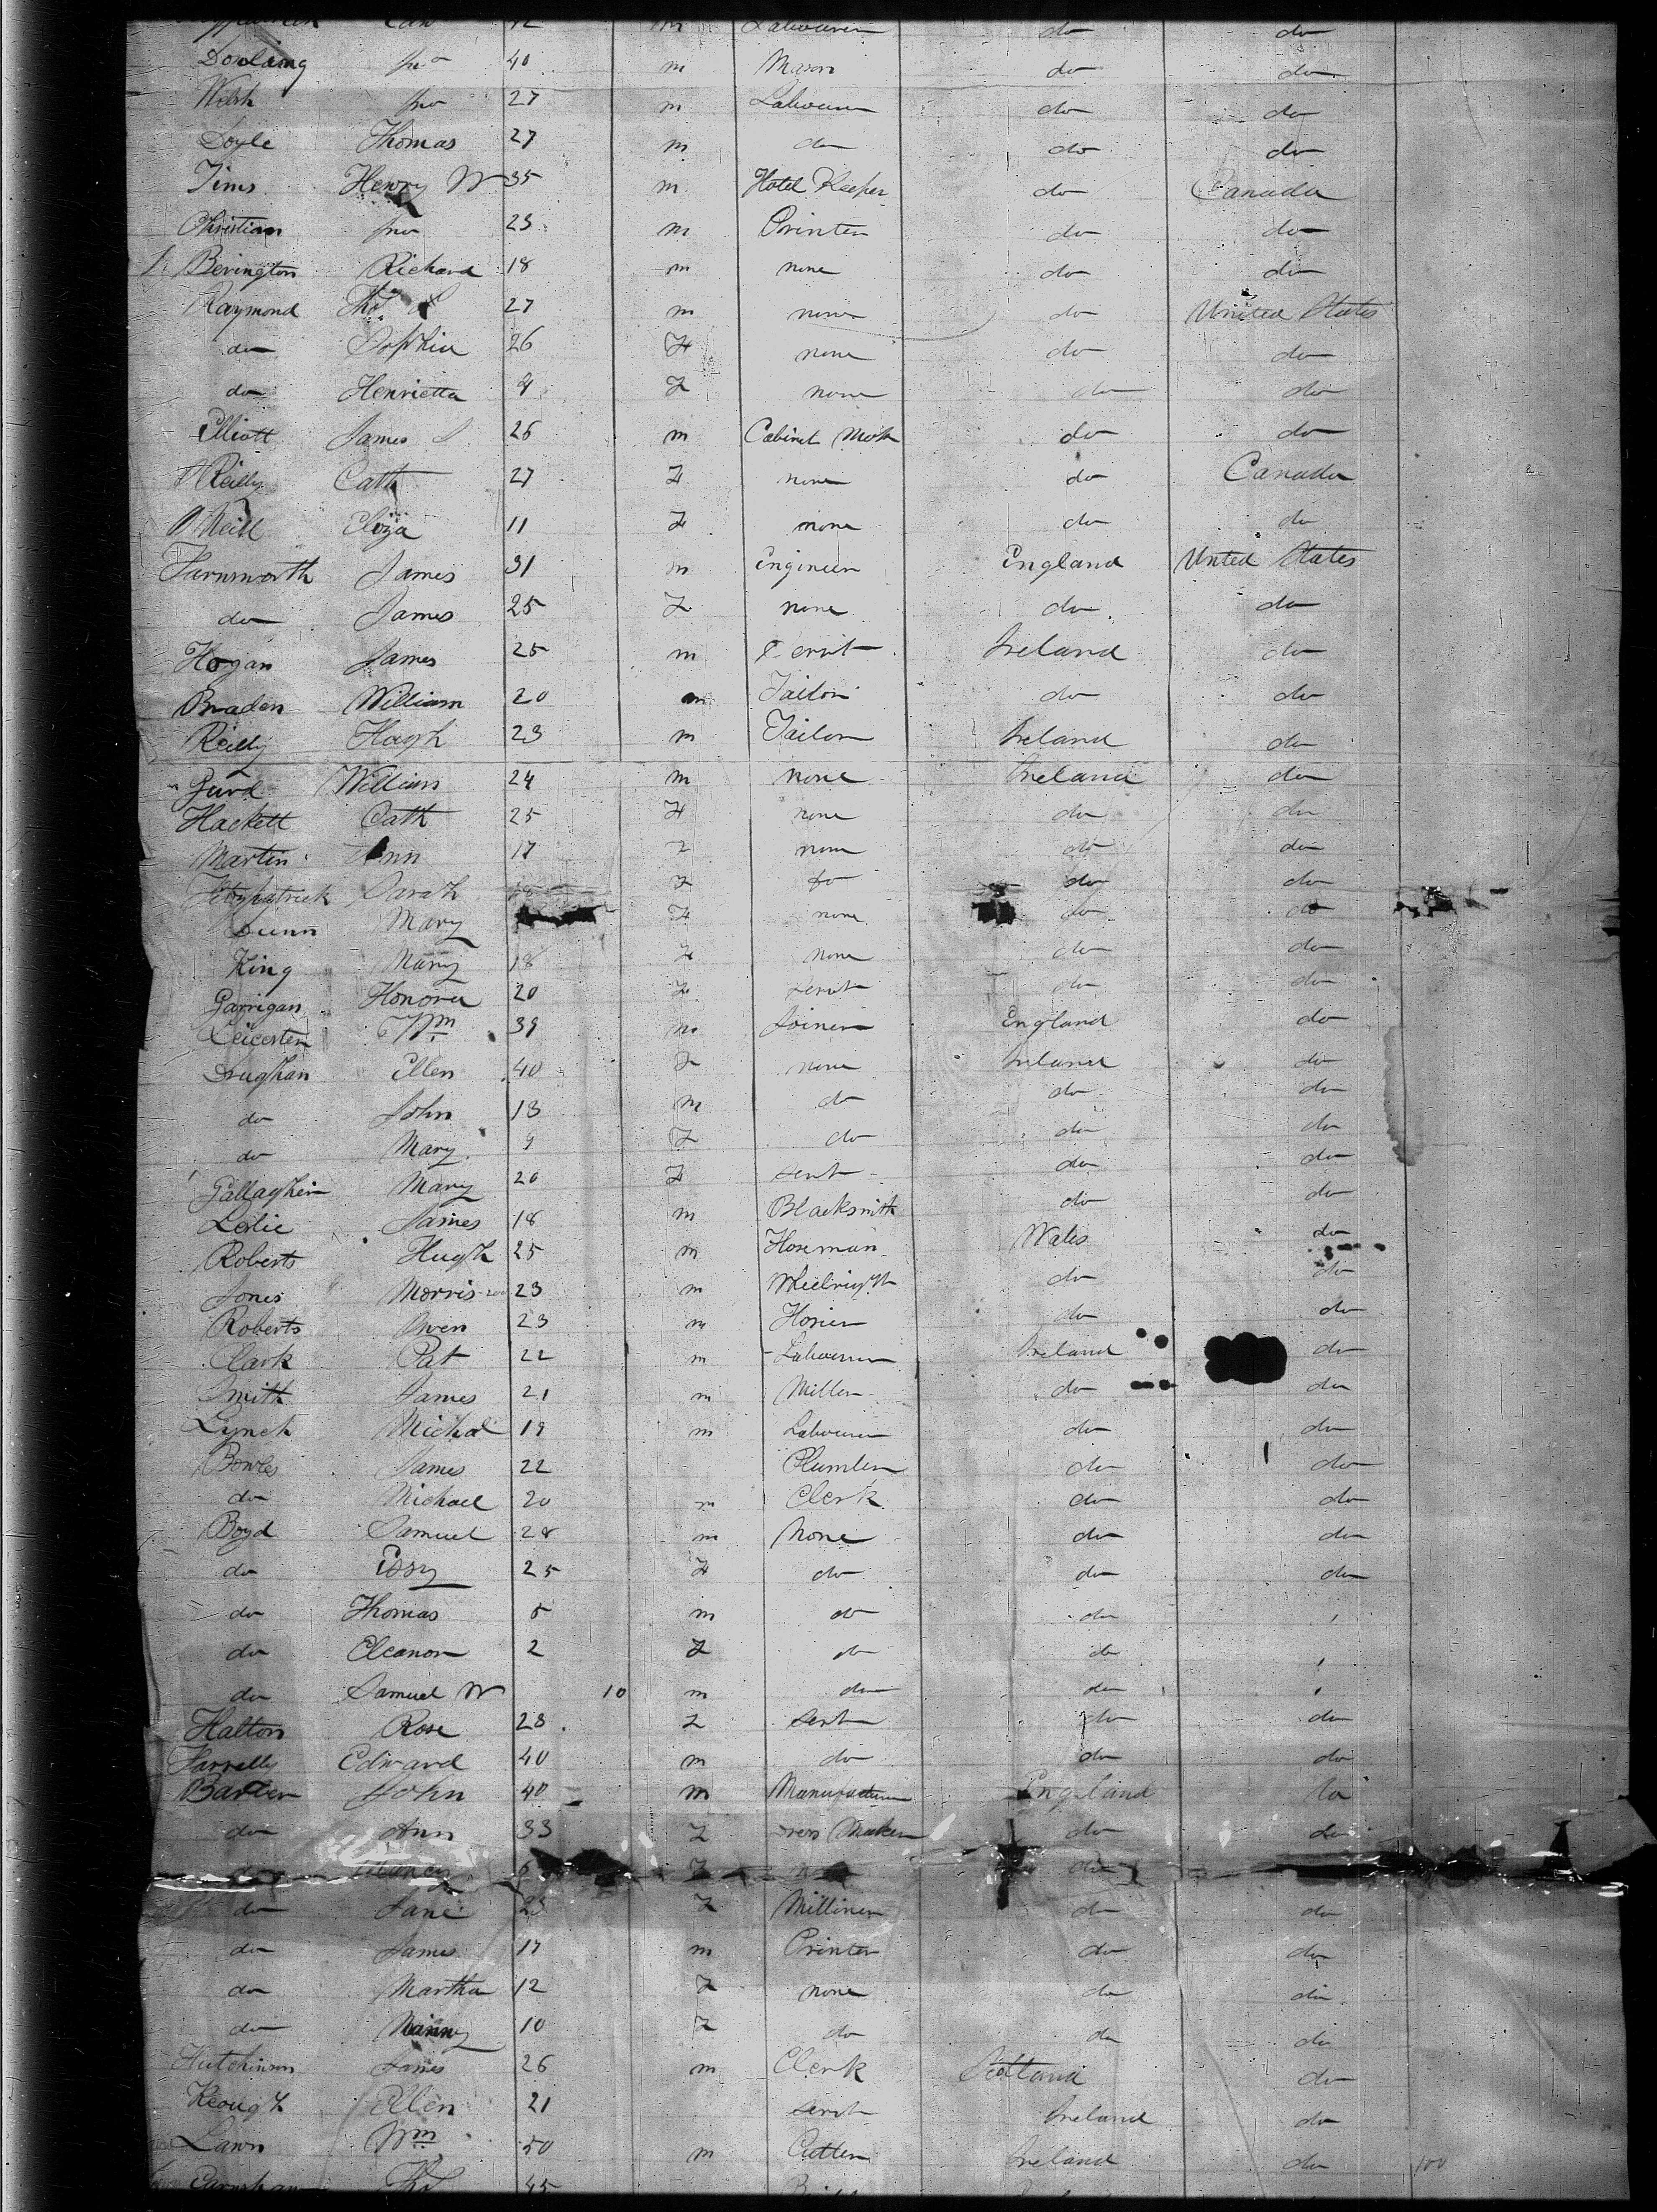 Labourer do do
Dowling Jno 40 m Mason do do
Welsh Jno 27 m Labourer do do
Doyle Thomas 27 m do do do
Tims Henry W 35 m Hotel Keeper do Canada
Christian Jno 23 m Printer do do
Berington Richard 18 m none do do
Raymond Thos 27 m none do United States
do Sophia 26 F none do do
do Henrietta 4 F none do do
Elliott James S 26 m Cabinet Mak do do
O'Reilly Cath 27 F none do Canada
O'Neill Eliza 11 F none do do
Farnsworth James 31 m Engineer England Unted States
do James 25 F none do do
Hogan James 25 m Servt Ireland do
Braden William 20 m Tailor do do
Reilly Hugh 23 m Tailor Ireland do
Gurd William 24 m none Ireland do
Hackett Cath 25 F none do do
Martin Ann 17 F none do do
Fitzpatrick Sarah F do do do
Dunn Mary F none do do
King Mary 18 F none do do
Garrigan Honora 20 F servt do do
Leicester Wm 39 m Joiner England do
Drughan Ellen 40 F none Ireland do
do John 13 m do do do
do Mary 9 F do do do
Gallagher Mary 20 F servt do do
Leslie James 18 m Blacksmith do do
Roberts Hugh 25 m Horseman Wales do
Jones Morris 23 m Wheelright do do
Roberts Owen 23 m Hosier do do
Clark Pat 22 m Labourer Ireland do
Smith James 21 m Miller do do
Lynch Michal 19 m Labourer do do
Bowles James 22 Plumber do do
do Michael 20 m Clerk do do
Boyd Samuel 28 m None do do
do Essy 25 F do do do
do Thomas 5 m do do "
do Eleanor 2 F do do "
do Samuel W 10 m do do "
Halton Rose 23 F servt do do
Farrelly Edward 40 m do do do
Barber John 40 m Manufacturer England do
do Ann 33 F Maker do do
do F do
do Jane 23 F Milliner do do
do James 17 m Printer do do
do Martha 12 F none do do
do Nanny 10 F do do do
Hutchinson James 26 m Clerk Scotland do
Keough Ellen 21 servt Ireland do
Lawn Wm 50 m Cutler Ireland do 100
Earnshaw Thos 45